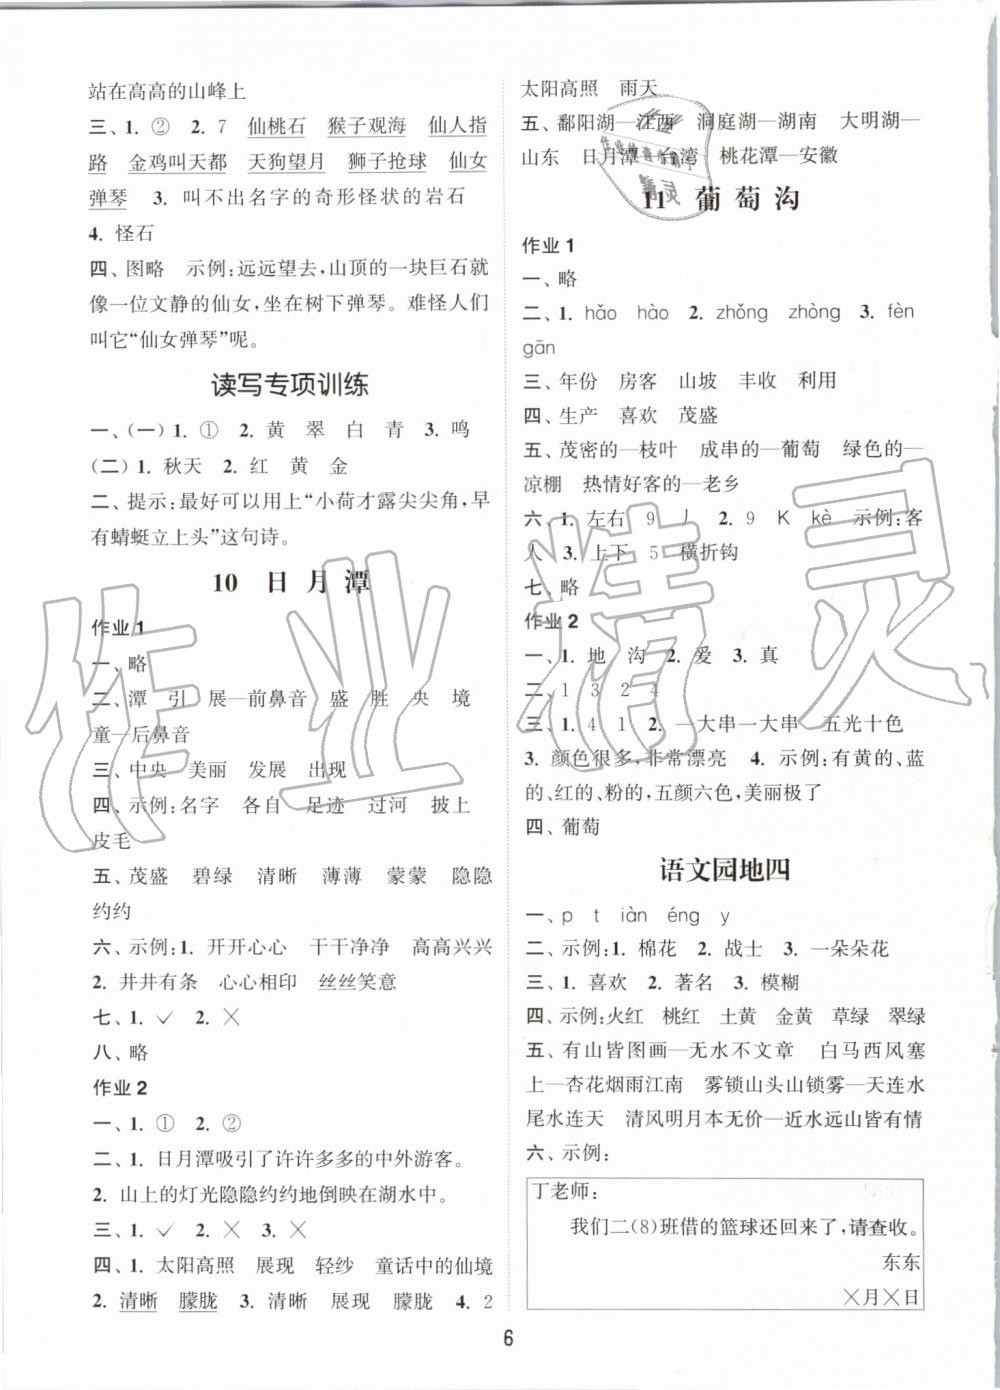 站在高高的山峰上
三、1. ② 2. 7 仙桃石 猴子观海 仙人指
路 金鸡叫天都 天狗望月 狮子抢球 仙女
弹琴 3. 叫不出名字的奇形怪状的岩石
4. 怪石
四、图略 示例:远远望去,山顶的一块巨石就
像一位文静的仙女,坐在树下弹琴。难怪人们
叫它“仙女弹琴”呢。
读写专项训练
一、(一)1. ① 2. 黄 翠 白 青 3. 鸣
(二)1. 秋天 2. 红 黄 金
二、提示:最好可以用上“小荷才露尖尖角,早
有蜻蜓立上头”这句诗。
10 日月潭
作业1
一、略
二、潭 引 展—前鼻音 盛 胜 央 境
童—后鼻音
三、中央 美丽 发展 出现
四、示例:名字 各自 足迹 过河 披上
皮毛
五、茂盛 碧绿 清晰 薄薄 蒙蒙 隐隐
约约
六、示例:1. 开开心心 干干净净 高高兴兴
2. 井井有条 心心相印 丝丝笑意
七、1. ✓ 2. ×
八、略
作业2
一、1. ① 2. ②
二、1. 日月潭吸引了许许多多的中外游客。
2. 山上的灯光隐隐约约地倒映在湖水中。
三、1. ✓ 2. × 3. ×
四、1. 太阳高照 展现 轻纱 童话中的仙境
2. 清晰 朦胧 3. 清晰 展现 朦胧 4. 2
太阳高照 雨天
五、鄱阳湖—江西 洞庭湖—湖南 大明湖—
山东 日月潭—台湾 桃花潭—安徽
11 葡萄沟
作业1
一、略
二、1. hǎo hào 2. zhǒng zhòng 3. fèn
gān
三、年份 房客 山坡 丰收 利用
四、生产 喜欢 茂盛
五、茂密的—枝叶 成串的—葡萄 绿色的—
凉棚 热情好客的—老乡
六、1. 左右 9 丿 2. 9 K kè 示例:客
人 3. 上下 5 横折钩
七、略
作业2
一、1. 地 沟 2. 爱 3. 真
二、1 3 2 4
三、1. 4 1 2. 一大串一大串 五光十色
3. 颜色很多,非常漂亮 4. 示例:有黄的、蓝
的、红的、粉的,五颜六色,美丽极了
四、葡萄
语文园地四
一、p t iàn éng y
二、示例:1. 棉花 2. 战士 3. 一朵朵花
三、1. 喜欢 2. 著名 3. 模糊
四、示例:火红 桃红 土黄 金黄 草绿 翠绿
五、有山皆图画—无水不文章 白马西风塞
上—杏花烟雨江南 雾锁山头山锁雾—天连水
尾水连天 清风明月本无价—近水远山皆有情
六、示例:
丁老师:
我们二(8)班借的篮球还回来了,请查收。
东东
×月×日
6
作业精灵